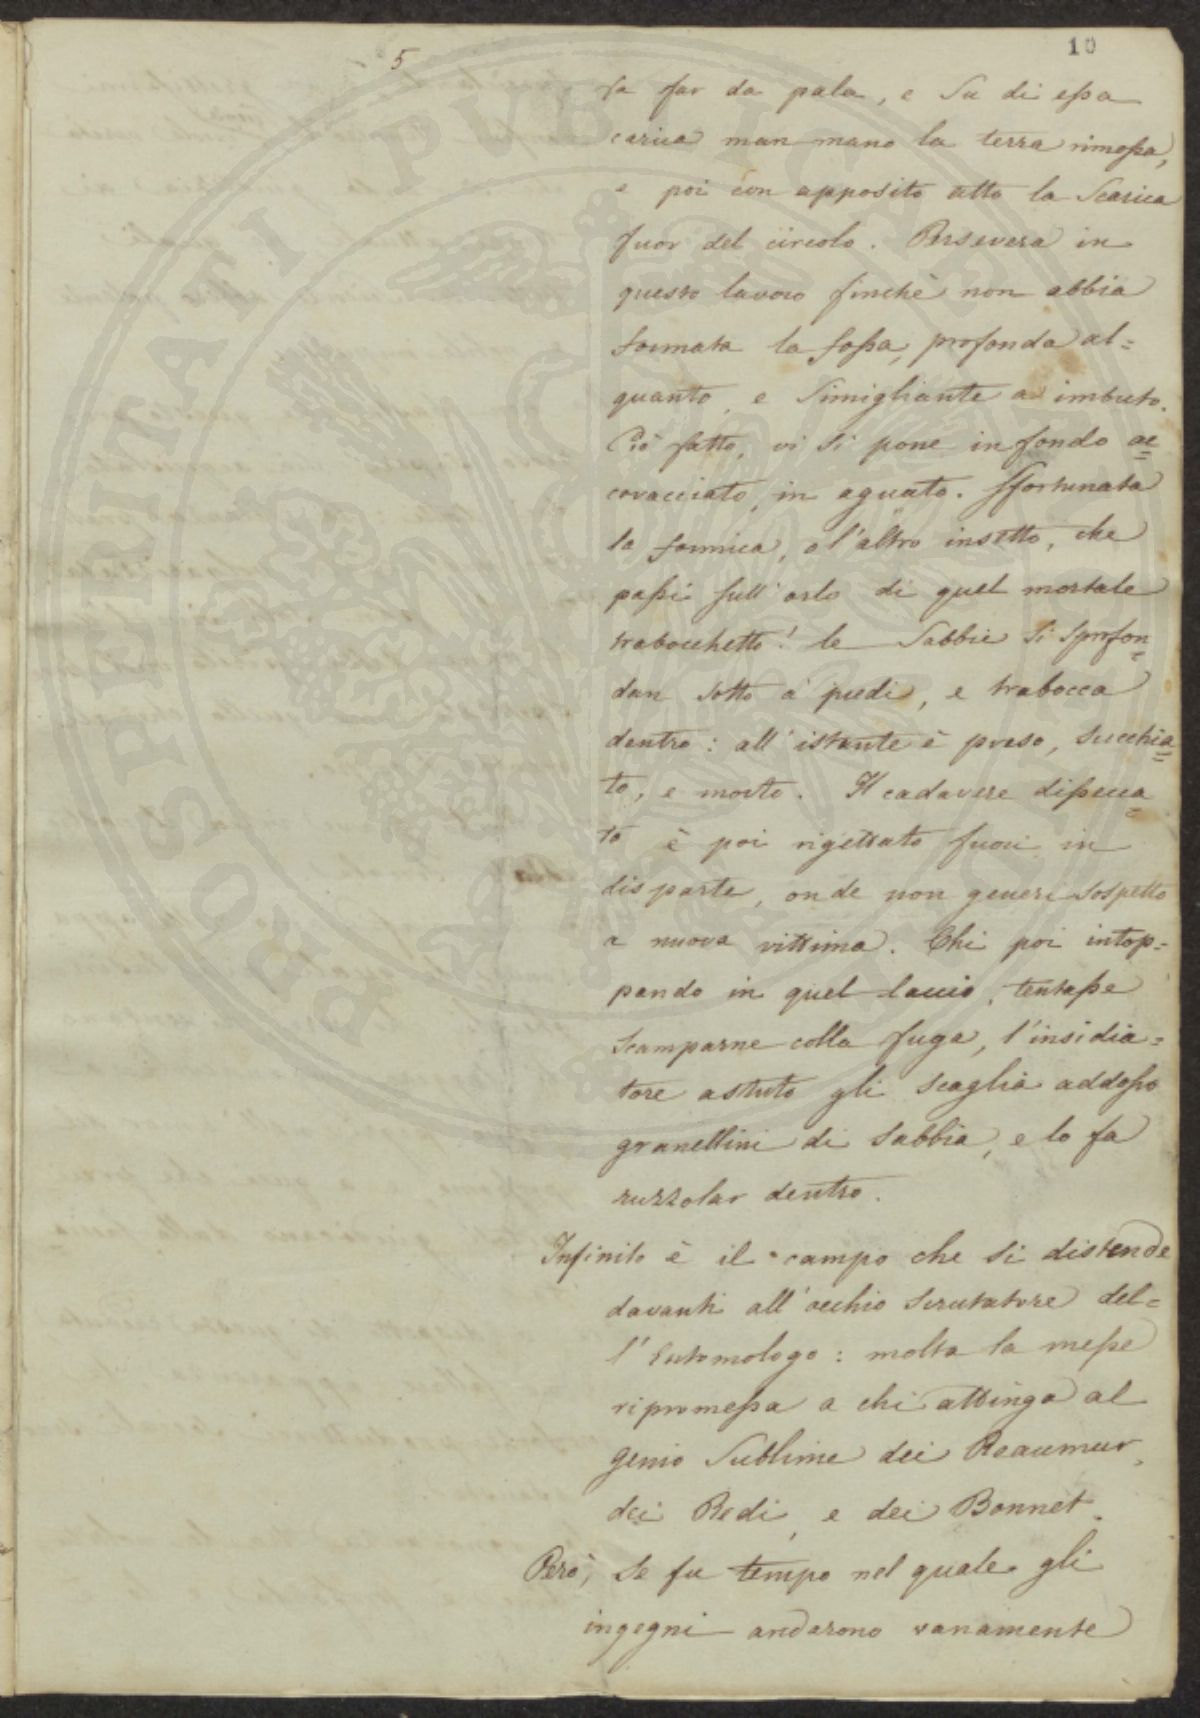 5
10
fa far da pala, e su di essa
carica man mano la terra rimossa,
e poi con apposito atto la scarica
fuor del circolo. Persevera in
questo lavoro finchè non abbia
formata la fossa, profonda al=
quanto, e simigliante a imbuto.
Ciò fatto, vi si pone in fondo ac=
covacciato, in aguato. Sfortunata
la formica, o l'altro insetto, che
passi sull'orlo di quel mortale
trabocchetto! le sabbie si sprofon=
dan sotto a' piedi, e trabocca
dentro: all'istante è preso, succhia=
to, e morto. Il cadavere dissecca=
to è poi rigettato fuori in
disparte, onde non generi sospetto
a nuova vittima. Chi poi intop=
pando in quel laccio, tentasse
scamparne colla fuga, l'insidia=
tore astuto gli scaglia addosso
granellini di sabbia, e lo fa
ruzzolar dentro.
Infinito è il campo che si distende
davanti all'occhio scrutatore del=
l'Entomologo: molta la messe
ripromessa a chi attinga al
genio sublime dei Reaumur,
dei Redi, e dei Bonnet.
Però, se fu tempo nel quale gli
ingegni andarono vanamente
PROSPERITATI PVBLICAE